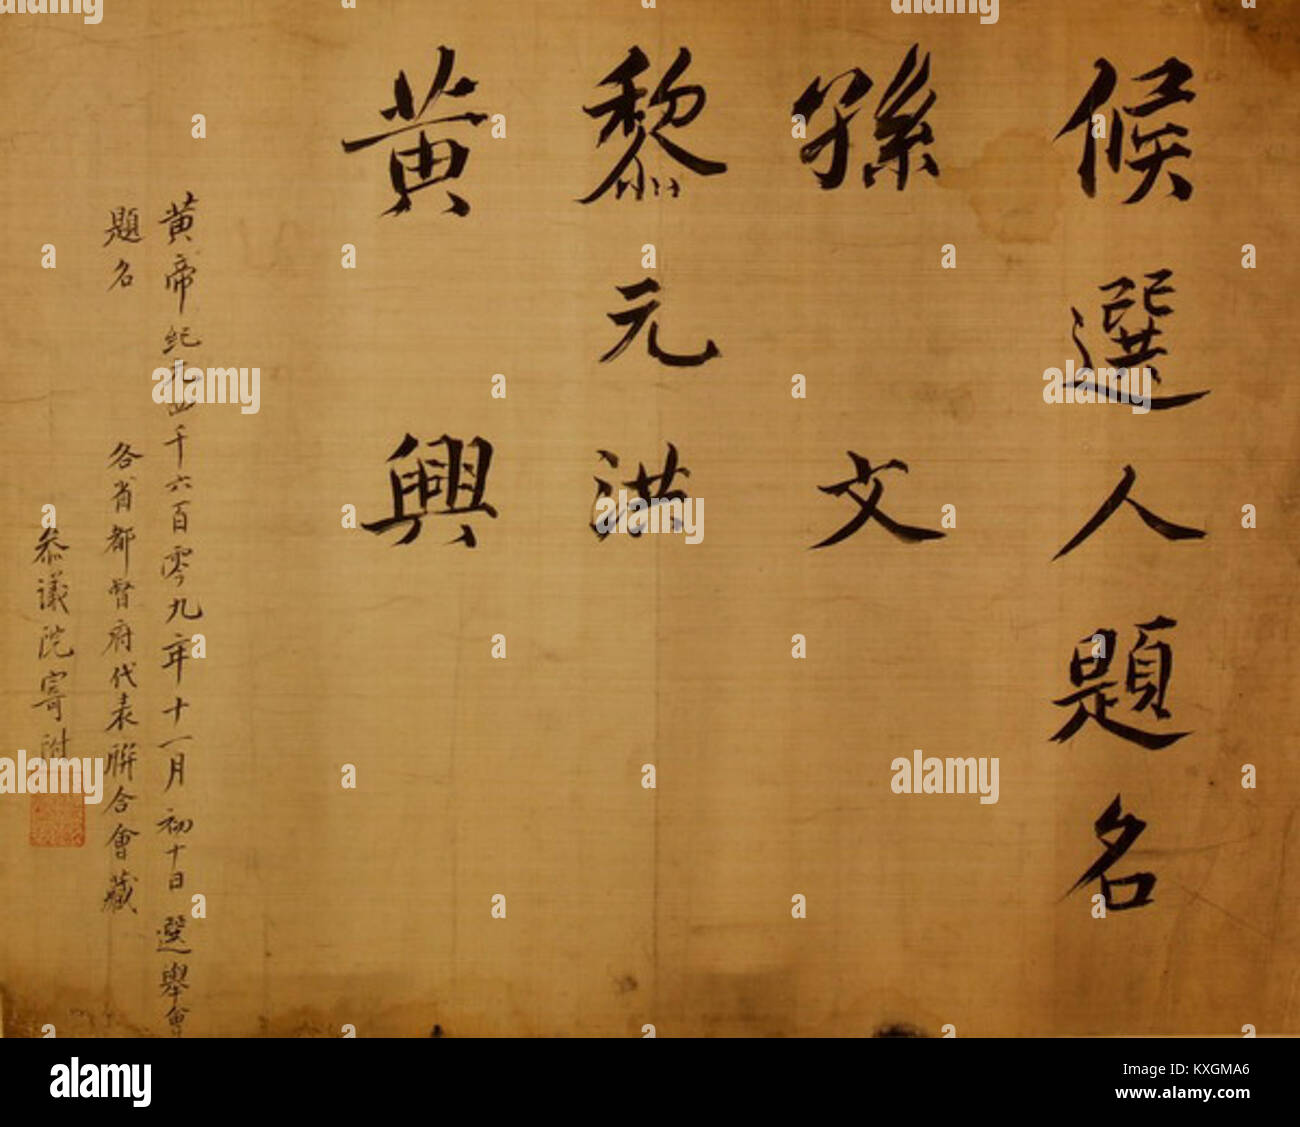 候選人題名
孫文
黎元洪
黃興
黃帝紀元四千六百零九年十一月初十日選舉會
題名 各省都督府代表聯合會藏
參議院寄附
alamy
Image ID: KXGMA6
www.alamy.com